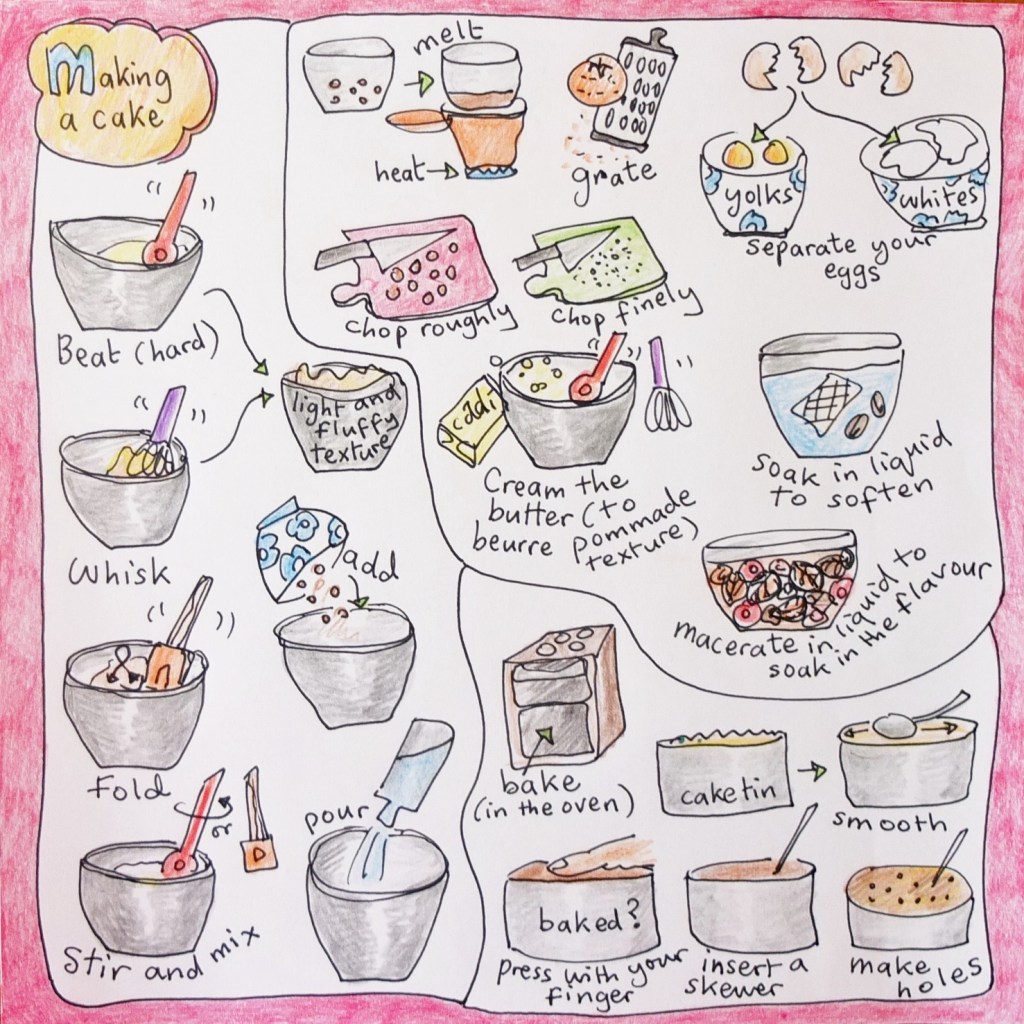 Making
a cake
Beat (hard)
Whisk
light and
fluffy
texture
add
Fold
Stir and mix
or
pour
melt
heat
grate
yolks
whites
separate your
eggs
chop roughly
chop finely
cadi
Cream the
butter (to
beurre pommade
texture)
soak in liquid
to soften
macerate in liquid to
soak in the flavour
bake
(in the oven)
caketin
smooth
baked?
press with your
finger
insert a
skewer
make
holes